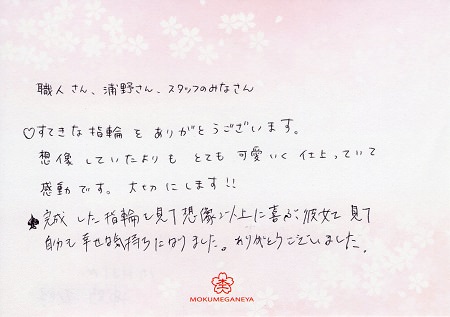 職人さん、浦野さん、スタッフのみなさん
♡すてきな指輪をありがとうございます。
想像していたよりもとても可愛いく仕上っていて
感動です。大切にします!!
♠完成した指輪を見て想像以上に喜ぶ彼女を見て
自分も幸せな気持ちになりました。ありがとうございました。
MOKUMEGANEYA